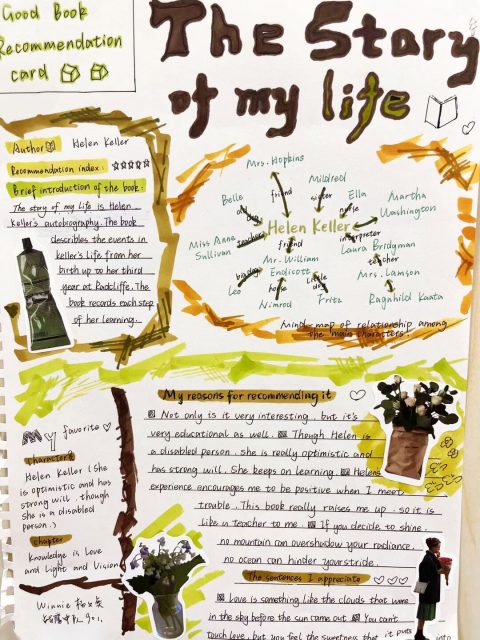 Good Book
Recommendation
card
The Story
of my life
Author Helen Keller
Recommendation index: ☆☆☆☆☆
Brief introduction of the book:
The story of my life is Helen
Keller's autobiography. The book
describes the events in
Keller's Life from her
birth up to her third
year at Radcliffe. The
book records each step
of her learning.
Mrs. Hopkins
Mildred
friend
sister
Ella
Belle
nurse
Martha
Washington
old dog
Helen Keller
Miss Anne
Sullivan
teacher
friend
interpreter
Mr. William
Endicott
Laura Bridgman
teacher
big dog
horse
Little dog
Mrs. Lamson
Leo
Nimrod
Fritz
Ragnhild Kaata
Mind-map of relationship among
the main characters.
My reasons for recommending it
① Not only is it very interesting, but it's
very educational as well. ② Though Helen is
a disabled person, she is really optimistic and
has strong will. She keeps on learning. ③ Helen's
experience encourages me to be positive when I meet
trouble. This book really raises me up, so it is
like a teacher to me. ④ If you decide to shine,
no mountain can overshadow your radiance,
no ocean can hinder your stride.
The sentences I appreciate
① Love is something like the clouds that were
in the sky before the sun came out. ② You can't
touch love, but you feel the sweetness that it puts into
My favorite
Character:
Helen Keller (She
is optimistic and has
strong will, though
she is a disabled
person.)
Chapter
Knowledge is Love
and Light and Vision
Winnie
901